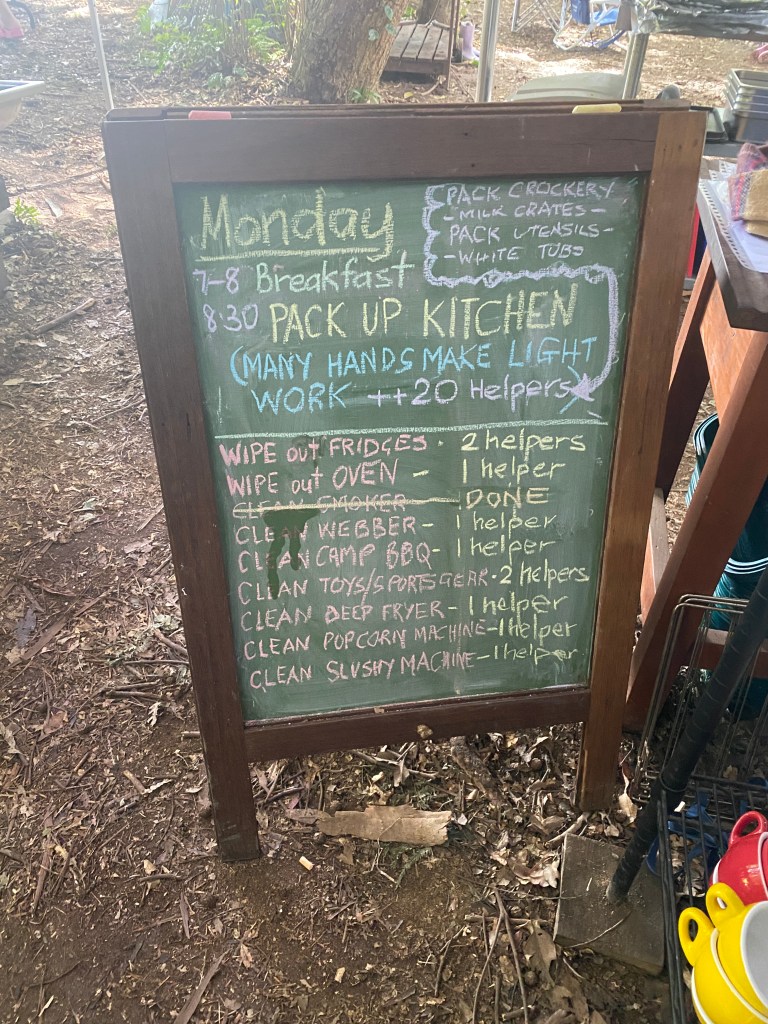 Monday
PACK CROCKERY
-MILK CRATES-
PACK UTENSILS-
-WHITE TUBS
7-8 Breakfast
8.30 PACK UP KITCHEN
(MANY HANDS MAKE LIGHT
WORK ++20 Helpers
WIPE out FRIDGES. 2 helpers
WIPE out OVEN - 1 helper
CLEAN SMOKER DONE
CLEAN WEBBER- 1 helper
CLEAN CAMP BBQ- 1 helper
CLEAN TOYS/SPORTSGEAR. 2 helpers
CLEAN DEEP FRYER- 1 helper
CLEAN POPCORN MACHINE-1 helper
CLEAN SLUSHY MACHINE-1 helper